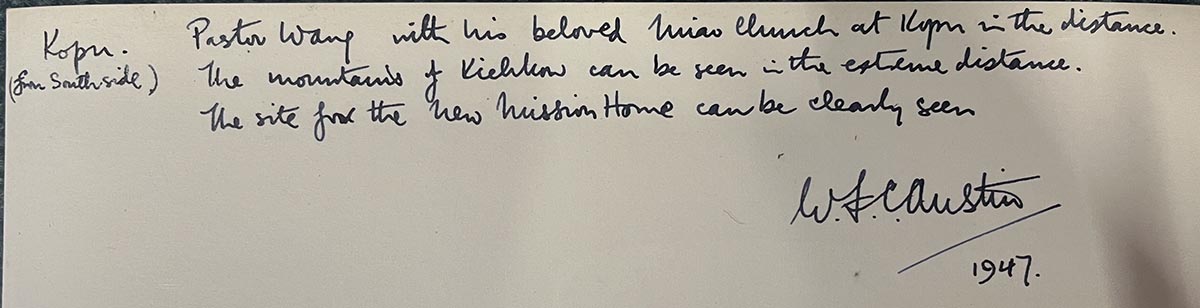 Kopu. Pastor Wang with his beloved Miao Church at Kopu in the distance.
(from South side) The mountains of Kiehkow can be seen in the extreme distance.
The site for the New Mission Home can be clearly seen
W.F.C. Austin
1947.